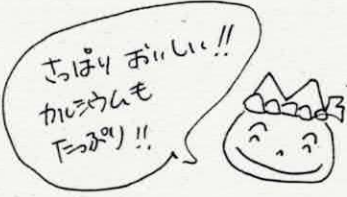 さっぱり おいしい!!
カルシウムも
たっぷり!!